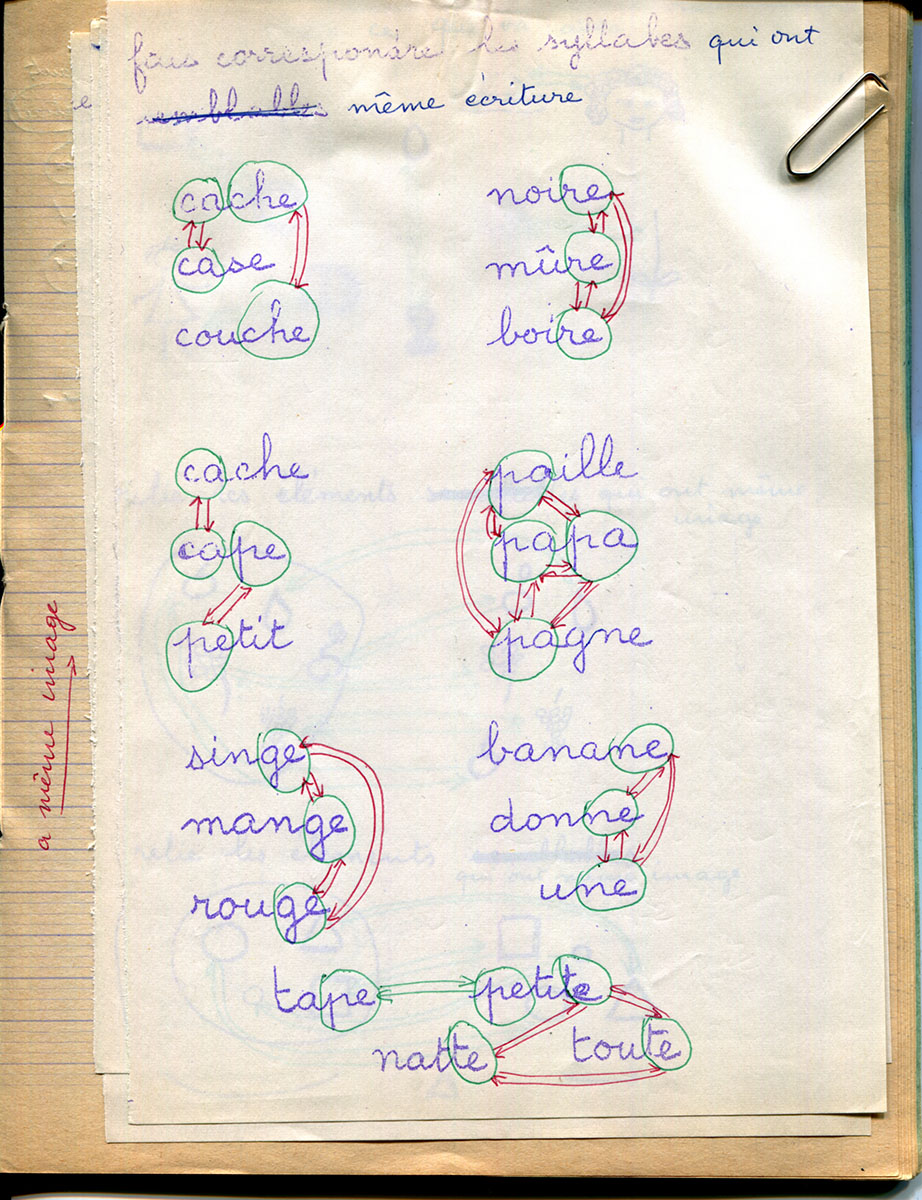 fais correspondre les syllabes qui ont
semblables même écriture
cache
case
couche
noire
mûre
boire
cache
cape
petit
paille
papa
pagne
singe
mange
rouge
banane
donne
une
tape petite
natte toute
a même image